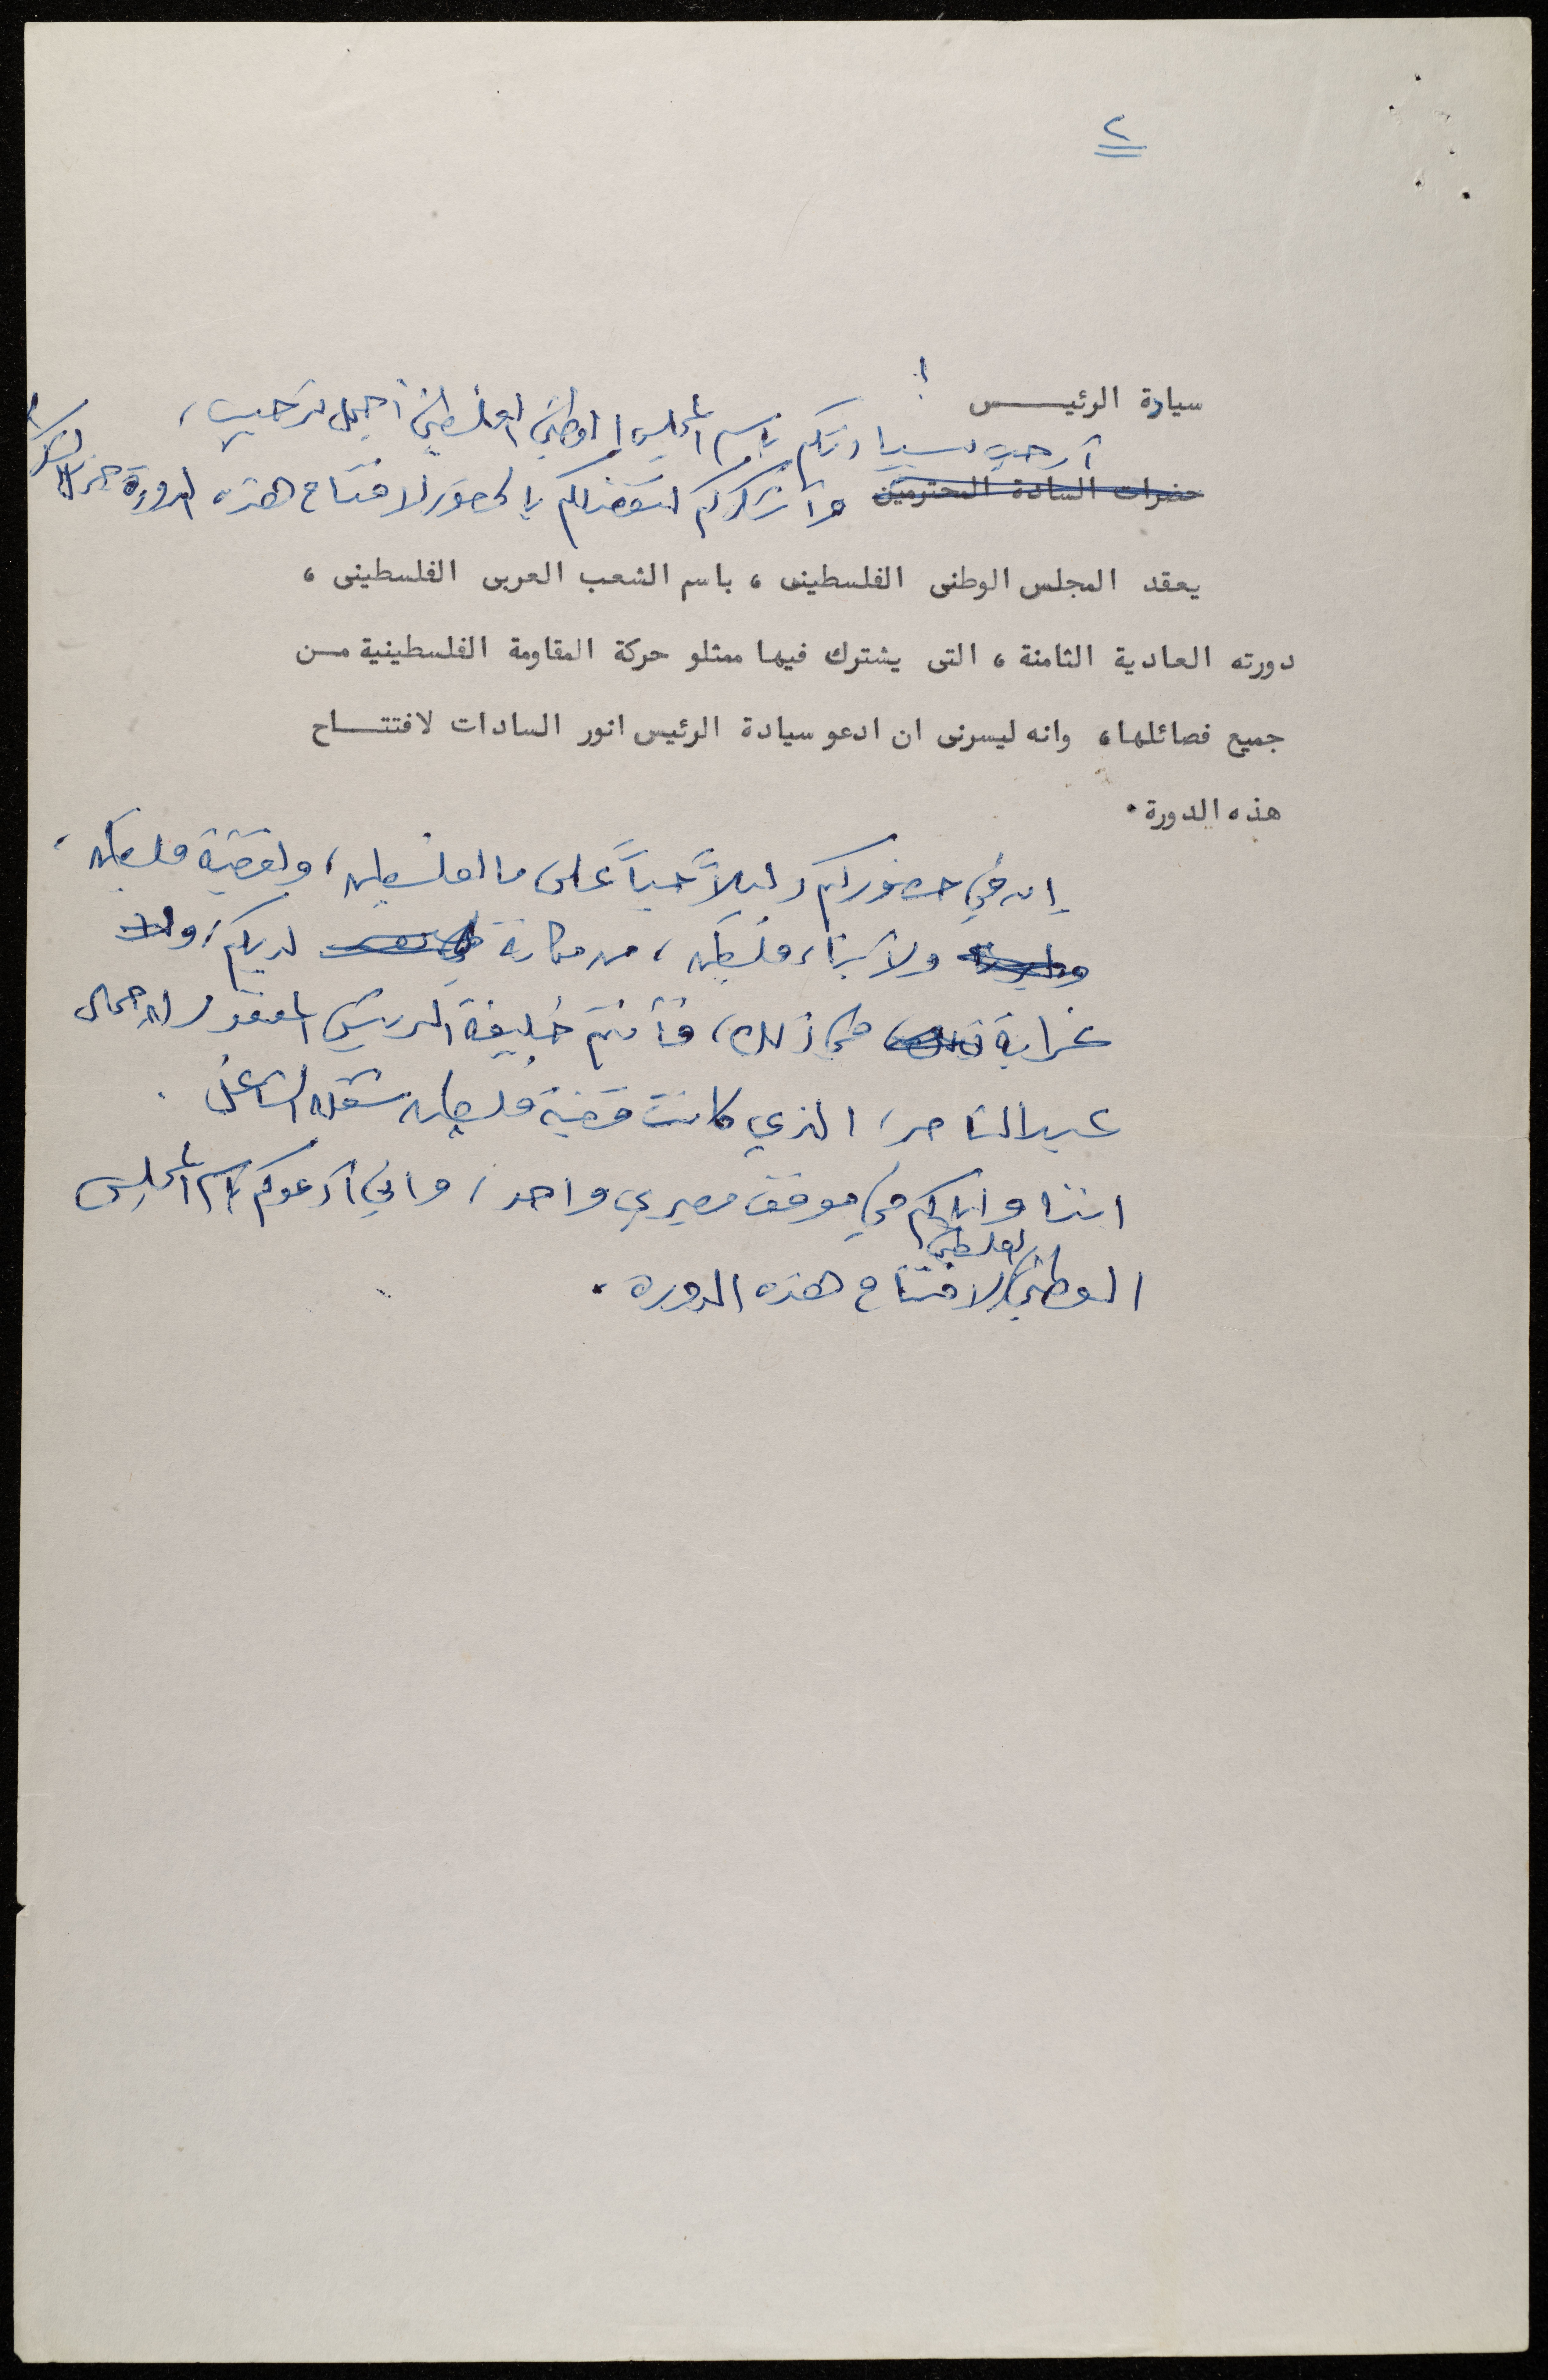 ٢
سيادة الرئيـــس !
أرحب بسيادتكم باسم المجلس الوطني الفلسطيني أجمل ترحيب،
حضرات السادة المحترمين وأشكركم لتفضلكم بالحضور لافتتاح هذه الدورة جزيل الشكر.
يعقد المجلس الوطنى الفلسطينى ، باسم الشعب العربى الفلسطينى ،
دورته العادية الثامنة ، التى يشترك فيها ممثلو حركة المقاومة الفلسطينية مـن
جميع فصائلها، وانه ليسرنى ان ادعو سيادة الرئيس انور السادات لافتتـــاح
هذه الدورة.
إن في حضوركم دليلاً حياً على ما لفلسطين، ولقضية فلسطين،
ولأبناء فلسطين، من مكانة لديكم، ولا
غرابة في ذلك، فأنتم خليفة الرئيس المغفور له جمال
عبد الناصر، الذي كانت قضية فلسطين شغله الشاغل.
اننا واياكم في موقف مصيري واحد، واني أدعوكم باسم المجلس
الوطني الفلسطيني لافتتاح هذه الدورة.